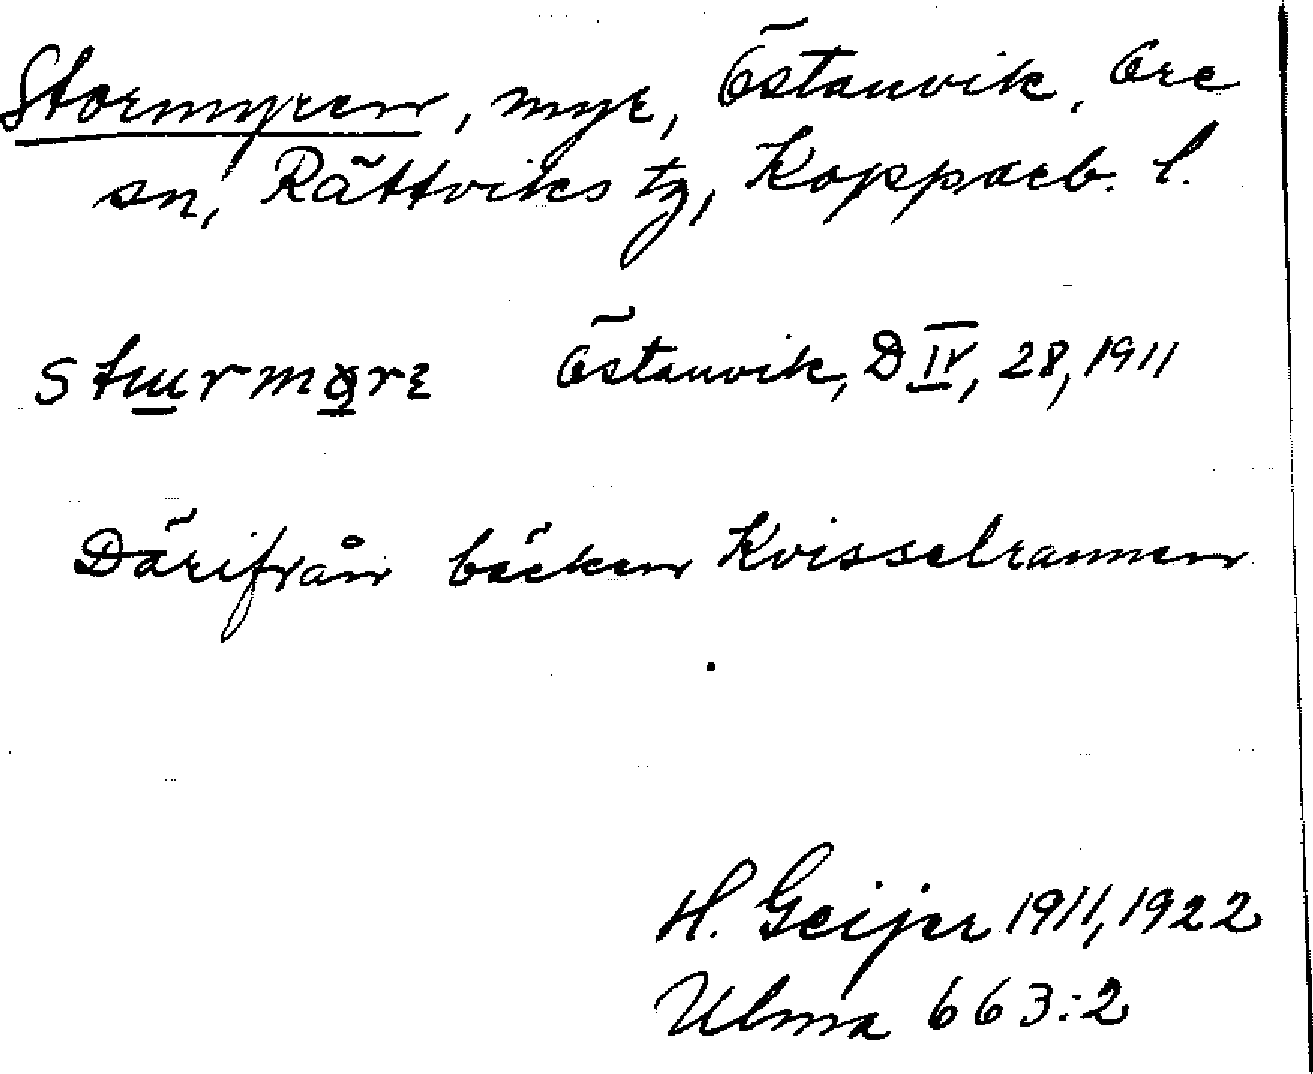 Stormyren, myr, Östanvik, Ore
sn, Rättviks tg, Kopparb. l.
Östanvik, D IV, 28, 1911
Därifrån bäcken Kvisselrannen
H. Geijer 1911, 1922
Ulma 663:2